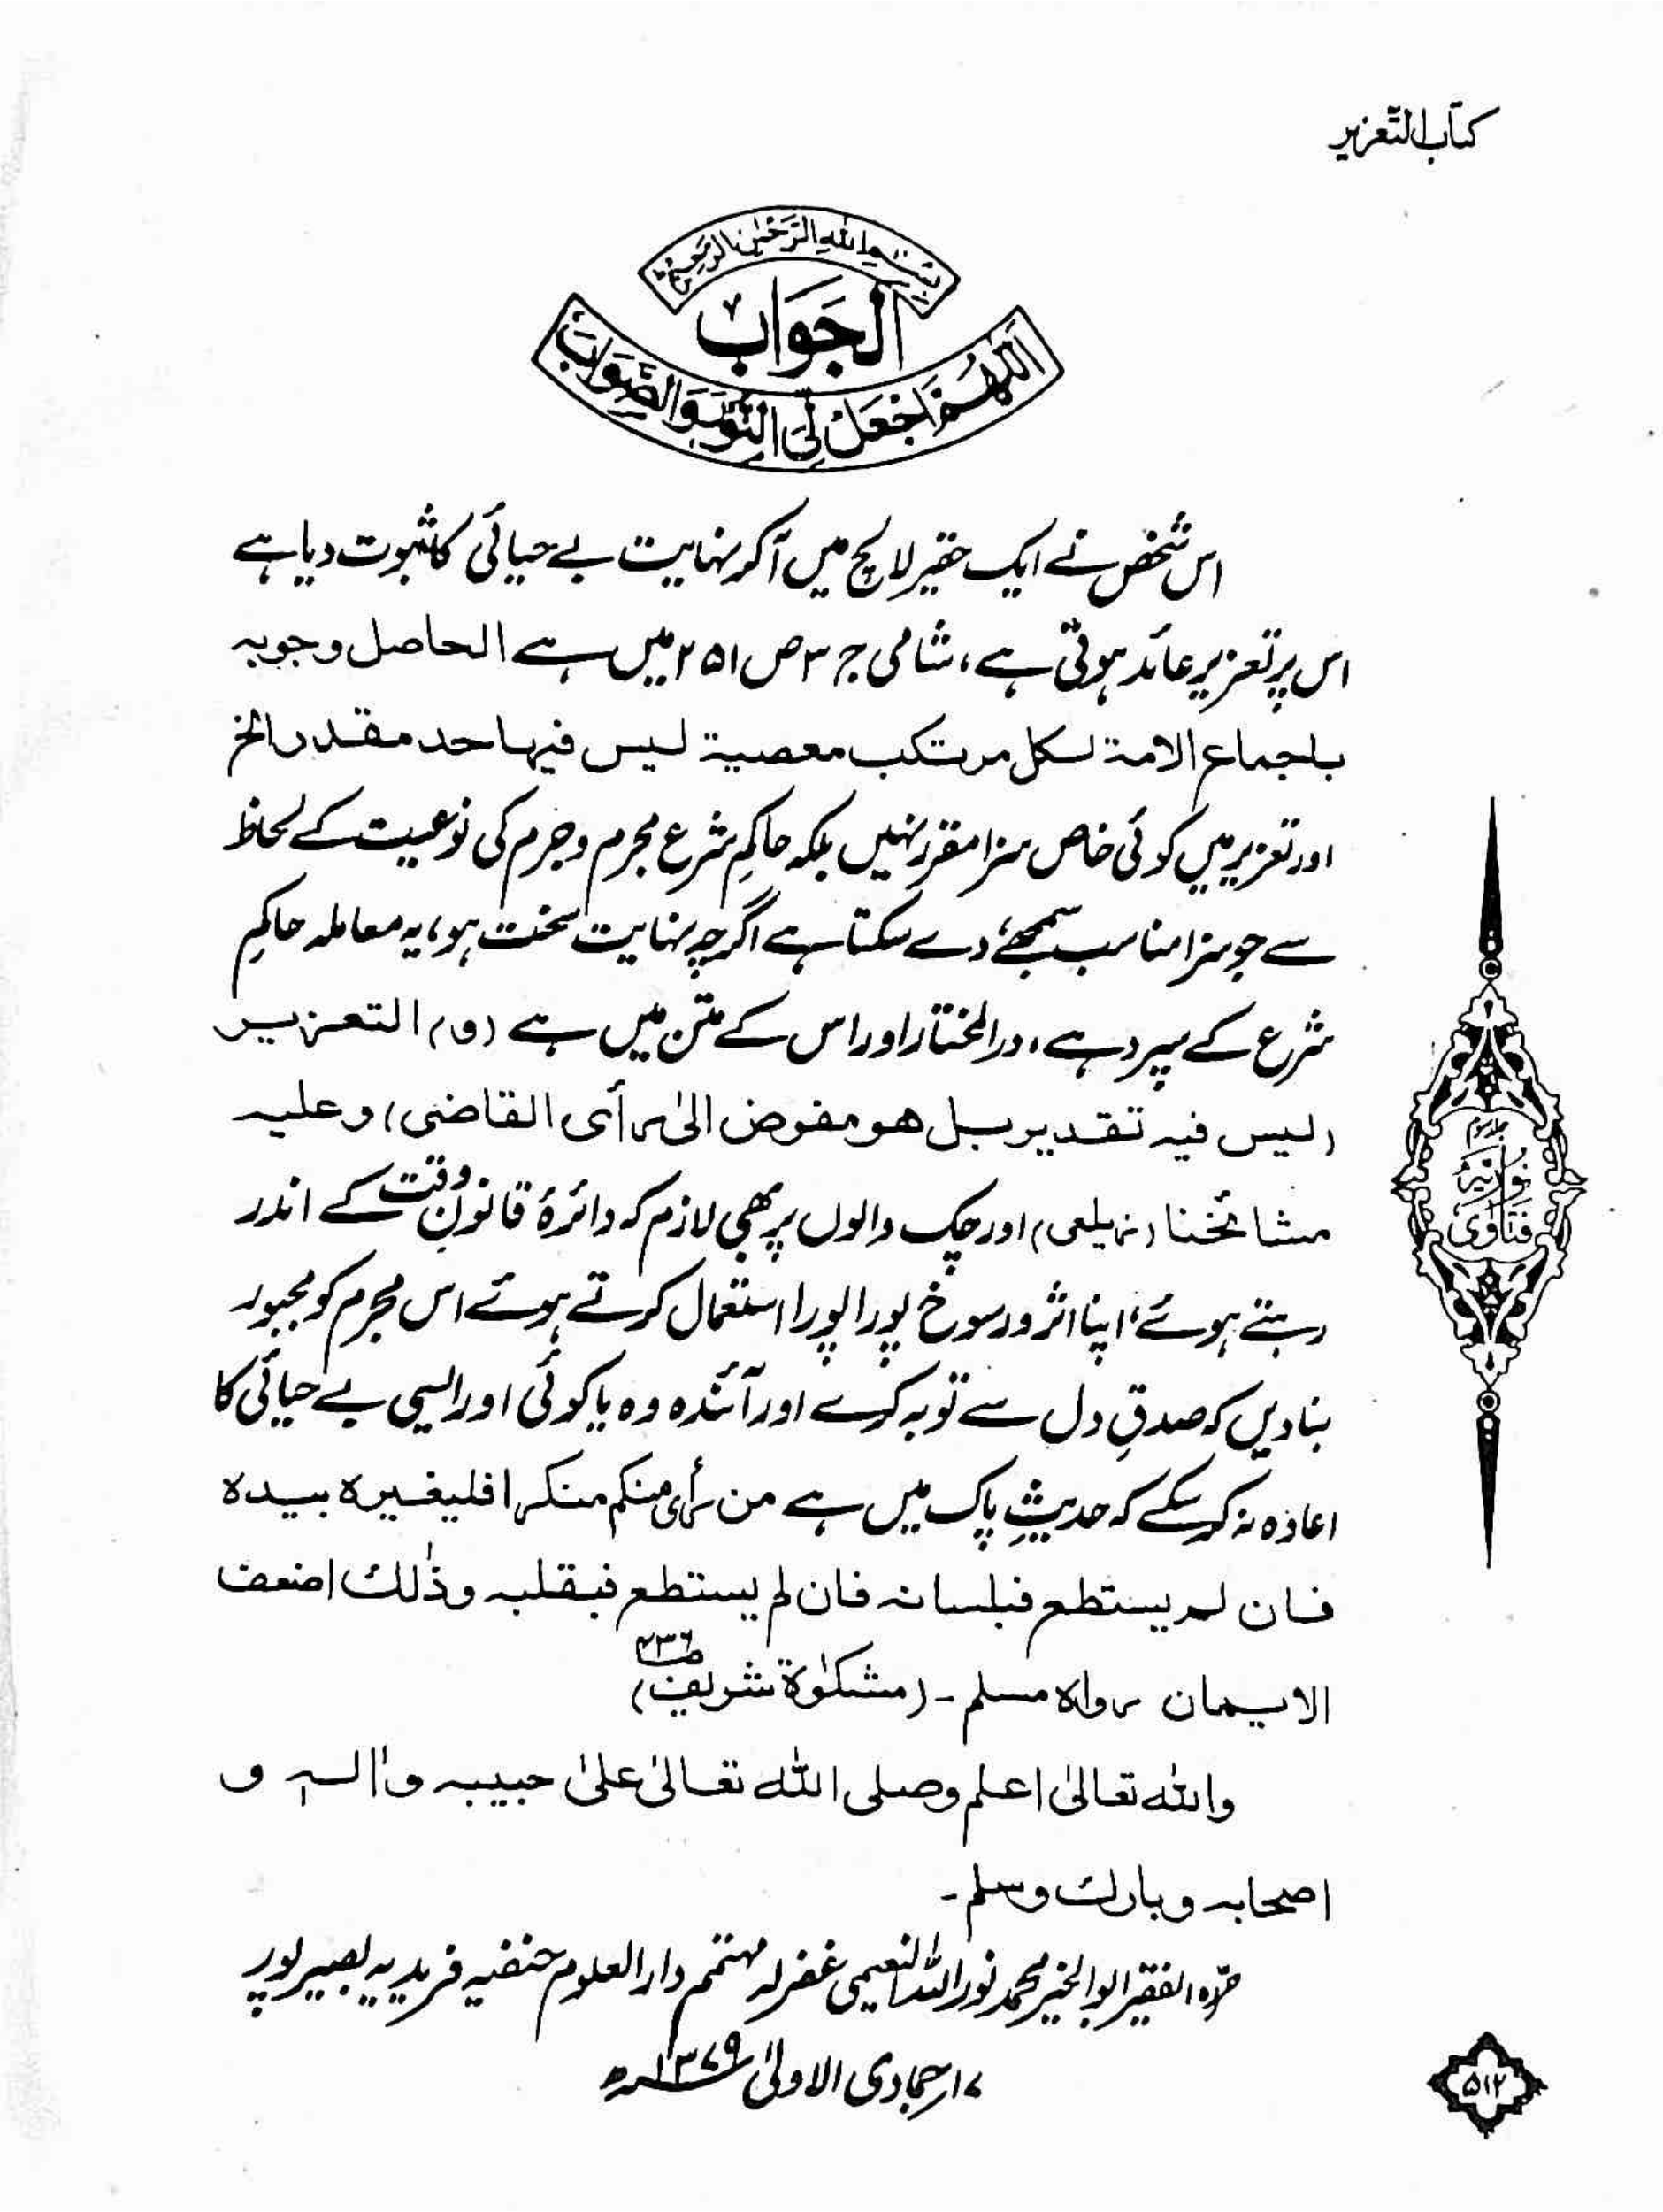 کتاب التعزیر
بسم الله الرحمن الرحیم
الجواب
اللهم اجعل لی النور والصواب
اس شخص نے ایک حقیر لالچ میں آکر نہایت بے حیائی کا ثبوت دیا ہے
اس پر تعزیر عائد ہوتی ہے، شامی ج ۳ ص ۲۵۱ میں ہے الحاصل وجوبہ
باجماع الامۃ لکل مرتکب معصیۃ لیس فیہا حد مقدر الخ
اور تعزیر میں کوئی خاص سزا مقرر نہیں بلکہ حاکمِ شرع مجرم و جرم کی نوعیت کے لحاظ
سے جو سزا مناسب سمجھے، دے سکتا ہے اگرچہ نہایت سخت ہو، یہ معاملہ حاکمِ
شرع کے سپرد ہے، درالمختار اور اس کے متن میں ہے (و) التعزیر
(لیس فیہ تقدیر بل ھو مفوض الیٰ رأی القاضی) و علیہ
مشائخنا (زیلعی) اور چک والوں پر بھی لازم کہ دائرۂ قانونِ وقت کے اندر
رہتے ہوئے، اپنا اثر و رسوخ پورا پورا استعمال کرتے ہوئے اس مجرم کو مجبور
بنا دیں کہ صدقِ دل سے توبہ کرے اور آئندہ وہ یا کوئی اور ایسی بے حیائی کا
اعادہ نہ کر سکے کہ حدیثِ پاک میں ہے من رأی منکم منکرا فلیغیرہ بیدہ
فان لم یستطع فبلسانہ فان لم یستطع فبقلبہ وذٰلک اضعف
الایمان رواہ مسلم۔ (مشکوٰۃ شریف ص۴۳۶)
واللہ تعالیٰ اعلم وصلی اللہ تعالیٰ علیٰ حبیبہ واٰلہٖ و
اصحابہ وبارک وسلم۔
حرّرہ الفقیر ابوالخیر محمد نور اللہ النعیمی غفرلہ مہتمم دارالعلوم حنفیہ فریدیہ بصیرپور
۱۷؍جمادی الاولیٰ ۱۳۷۹ھ
فتاوی نوریہ
۵۱۲